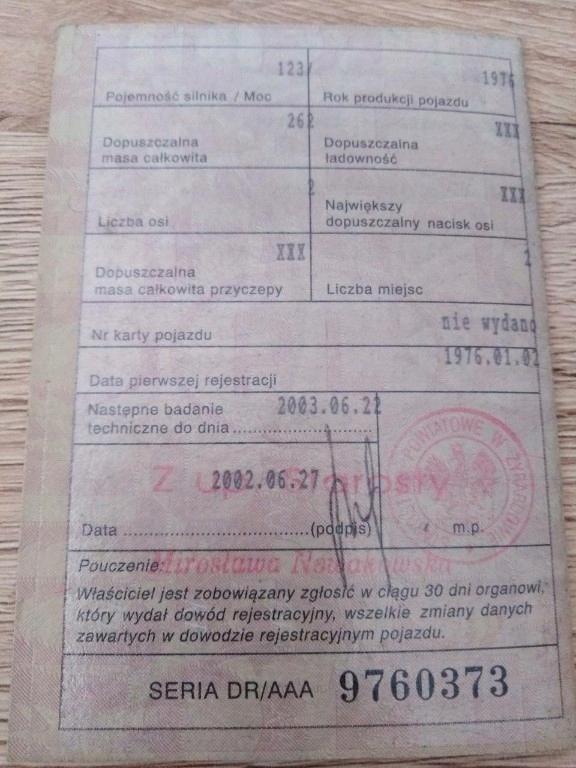 123/ 1976
Pojemność silnika / Moc Rok produkcji pojazdu
262 XXX
Dopuszczalna masa całkowita Dopuszczalna ładowność
2 XXX
Liczba osi Największy dopuszczalny nacisk osi
XXX 2
Dopuszczalna masa całkowita przyczepy Liczba miejsc
Nr karty pojazdu nie wydano
1976.01.02
Data pierwszej rejestracji
Następne badanie 2003.06.22
techniczne do dnia ........................
Z up. Starosty
2002.06.27
Data ................................(podpis) m.p.
POWIATOWE W ŻYRARDOWIE
Mirosława Nowakowska
Pouczenie:
Właściciel jest zobowiązany zgłosić w ciągu 30 dni organowi,
który wydał dowód rejestracyjny, wszelkie zmiany danych
zawartych w dowodzie rejestracyjnym pojazdu.
SERIA DR/AAA 9760373